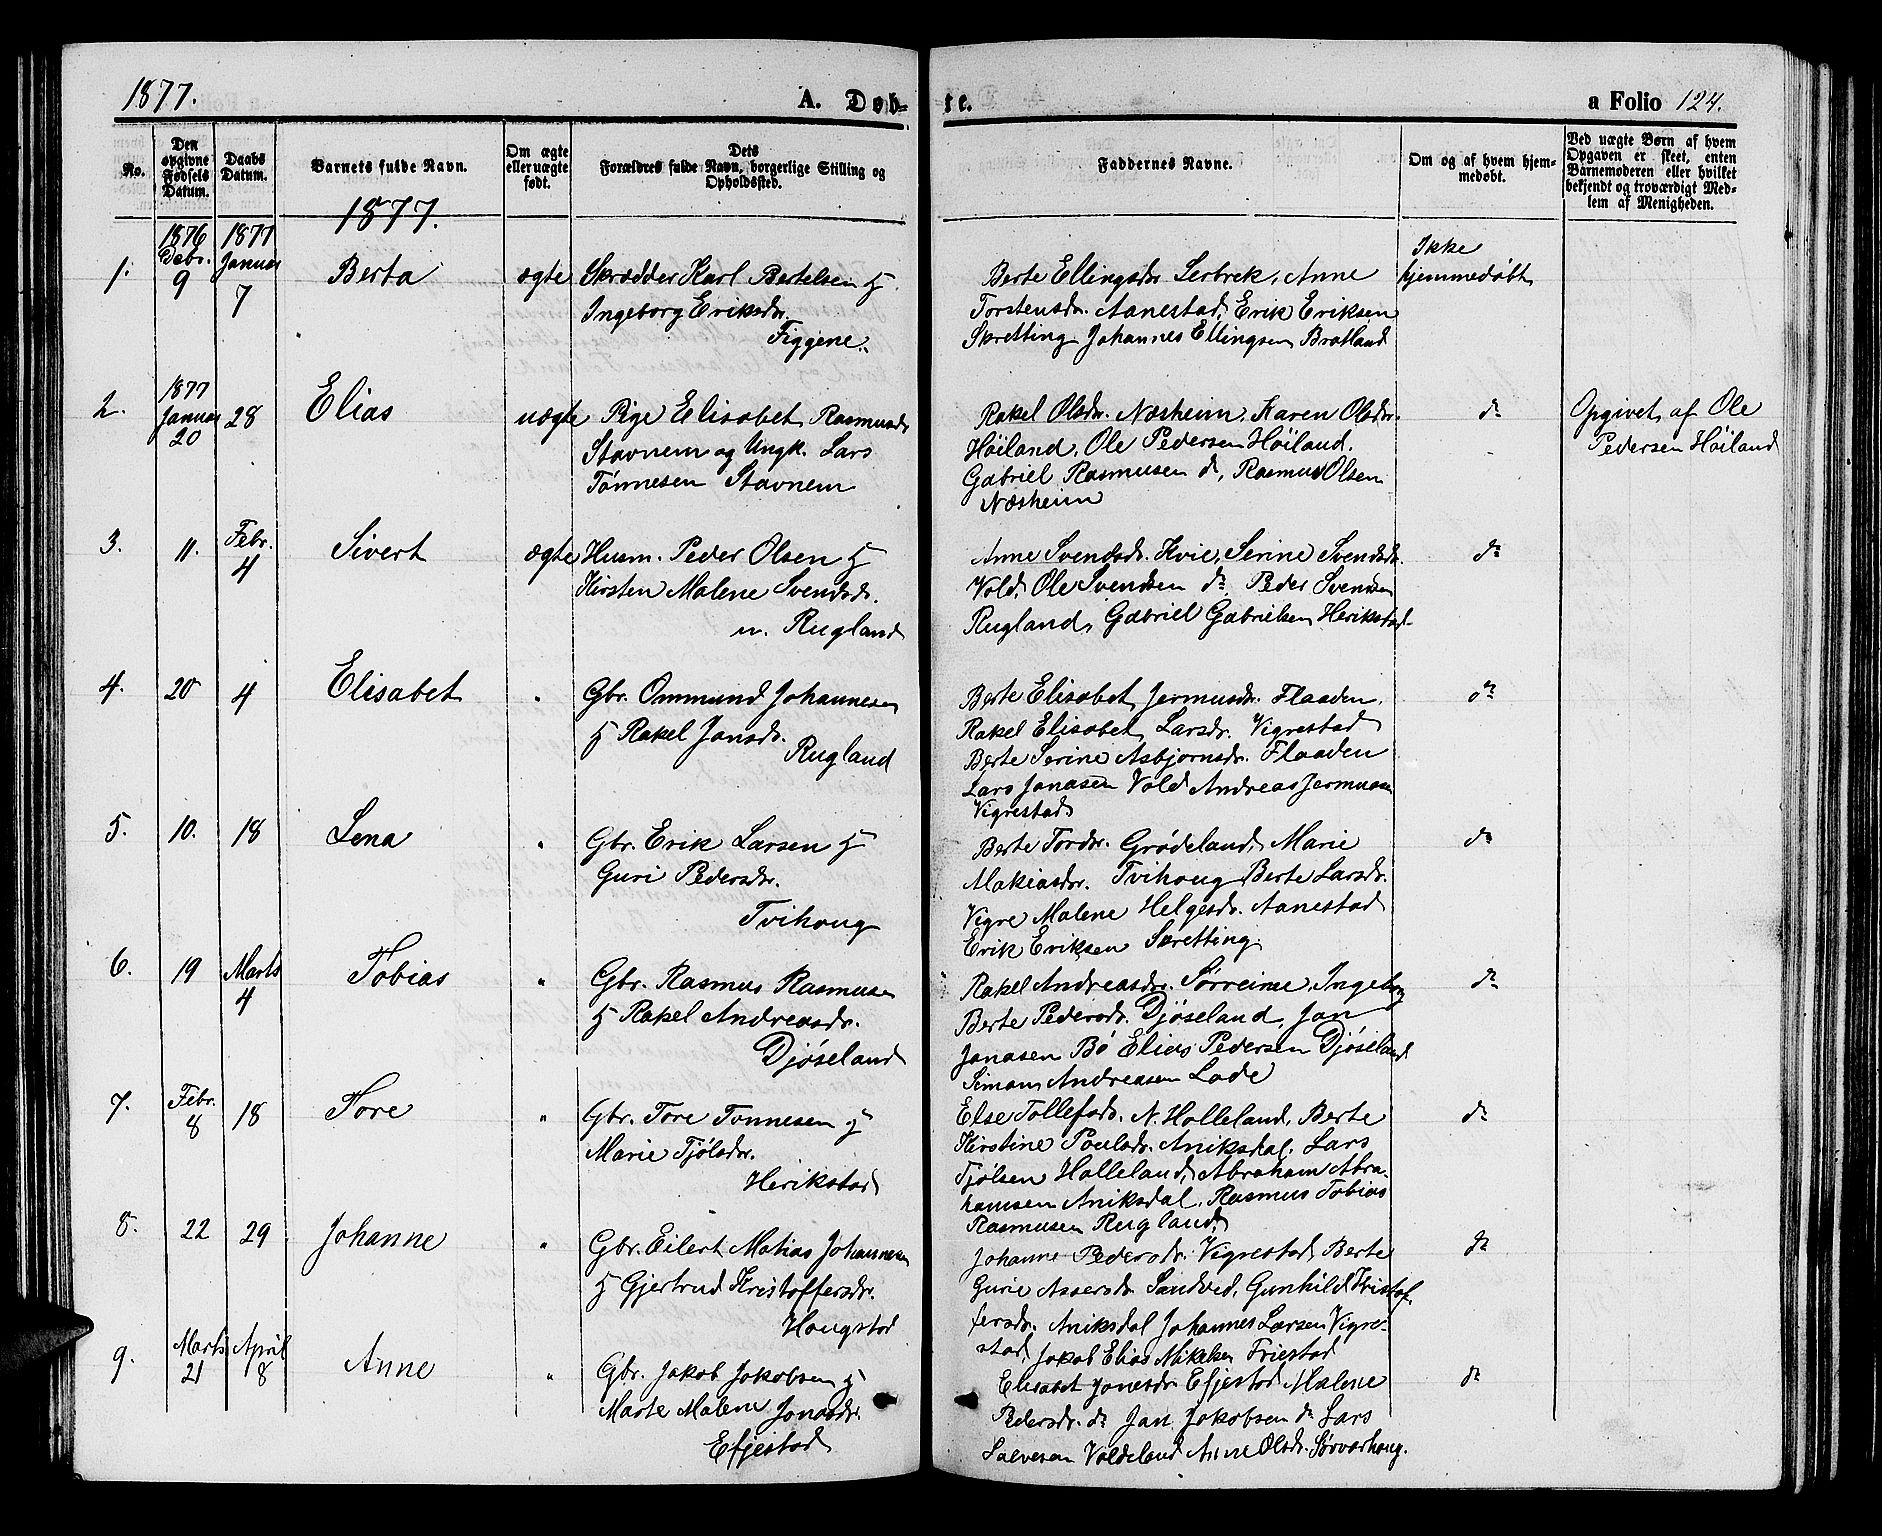 1877.
A. Døb-
te.
a Folio 124.
No.
Den opgivne Fødsels Datum.
Daabs Datum.
Barnets fulde Navn.
Om ægte eller uægte født.
Dets Forældres fulde Navn, borgerlige Stilling og Opholdssted.
Faddernes Navne.
Om og af hvem hjemmedøbt.
Ved uægte Børn af hvem Opgaven er skeet, enten Barnemoderen eller hvilket bekjendt og troværdigt Medlem af Menigheden.
1877.
1. 1876 Decbr. 9 1877 Januar 7 Berta ægte
Skrædder Karl Bertelsen &
Ingeborg Eriksdr.
Figgene.
Berte Ellingsdr. Serbrek, Anne
Torstensdr. Aanestad, Erik Eriksen
Skretting Johannes Ellingsen Bratland
Ikke
hjemmedøbt
2. 1877 Januar 20 28 Elias uægte
Pige Elisabet Rasmusdr
Stavnem og Ungk. Lars
Tönnesen Stavnem
Rakel Olsdr. Næsheim, Karen Olsdr.
Höiland, Ole Pedersen Höiland,
Gabriel Rasmusen do, Rasmus Olsen
Næsheim
do
Opgivet af Ole
Pedersen Höiland
3. 11. Febr. 4 Sivert ægte
Husm. Peder Olsen &
Kirsten Malene Svendsdr.
u. Rugland
Anne Svendsdr. Kvie, Serine Svendsdr.
Vold, Ole Svendsen do Peder Svendsen
Rugland, Gabriel Gabrielsen Herikstad
do
4. 20 4 Elisabet "
Gbr. Ommund Johannesen
& Rakel Jansdr.
Rugland
Berte Elisabet Jermusdr. Flaaden,
Rakel Elisabet Larsdr. Vigrestad
Berte Serine Asbjornsdr. Flaaden
Lars Janasen Vold Andreas Jermusen
Vigrestad
do
5. 10. 18 Lena "
Gbr. Erik Larsen &
Guri Pedersdr.
Tvihoug
Berte Tordr. Grödeland, Marie
Makiasdr. Tvihoug Berte Larsdr.
Vigre Malene Helgesdr. Aanestad
Erik Eriksen Skretting
do
6. 19 Marts 4 Tobias "
Gbr. Rasmus Rasmusen
& Rakel Andreasdr.
Djöseland
Rakel Andreasdr. Sörreime, Ingeborg
Berte Pedersdr. Djöseland, Jan
Janasen Bö Elias Pedersen Djöseland
Simon Andreasen Lode
do
7. Febr. 8 18 Tore "
Gbr. Tore Tonnesen &
Marie Tjölsdr.
Herikstad
Else Tollefsdr. N. Holleland, Berte
Kirstine Poulsdr. Aniksdal, Lars
Tjölsen Holleland, Abraham Abra-
hamsen Aniksdal, Rasmus Tobias
Rasmusen Rugland,
do
8. 22 29 Johanne "
Gbr. Eilert Matias Johannesen
& Gjertrud Kristoffersdr.
Hougstad
Johanne Pedersdr. Vigrestad, Berte
Gurie Assersdr Sandved, Gunhild Kristof-
fersdr. Aniksdal Johannes Larsen Vigre-
stad, Jakob Elias Mikelsen Friestad
do
9. Marts 21 April 8 Anne "
Gbr. Jakob Jakobsen &
Marte Malene Jonasdr.
Efjestad
Elisabet Jonesdr Efjestad Malene
Pedersdr. do Jan Jakobsen do Lars
Salvesen Voldeland Anne Olsdr. Sörvarhoug.
do